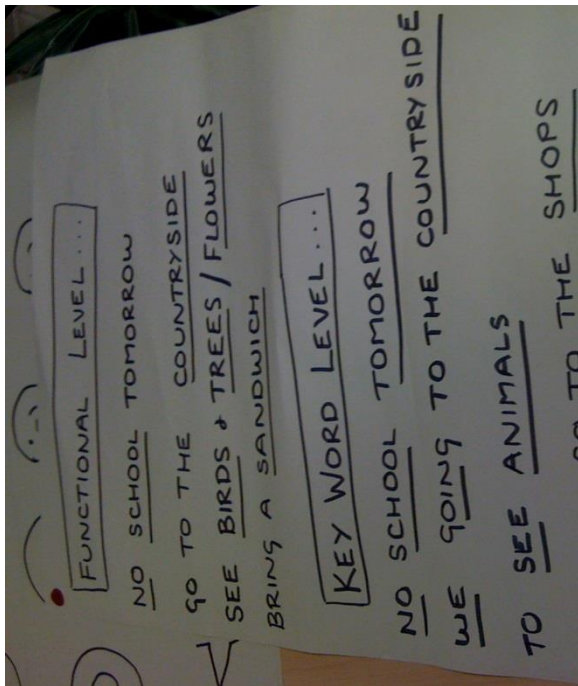 FUNCTIONAL LEVEL....
NO SCHOOL TOMORROW
GO TO THE COUNTRYSIDE
SEE BIRDS & TREES / FLOWERS
BRING A SANDWICH
KEY WORD LEVEL...
NO SCHOOL TOMORROW
WE GOING TO THE COUNTRYSIDE
TO SEE ANIMALS
GO TO THE SHOPS